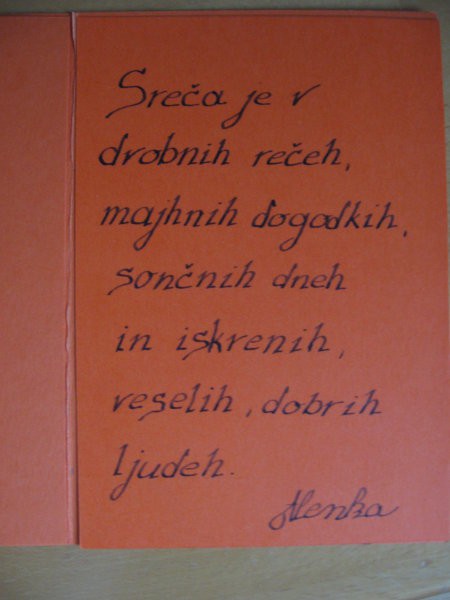 Sreča je v
drobnih rečeh,
majhnih dogodkih,
sončnih dneh
in iskrenih,
veselih, dobrih
ljudeh.
Alenka